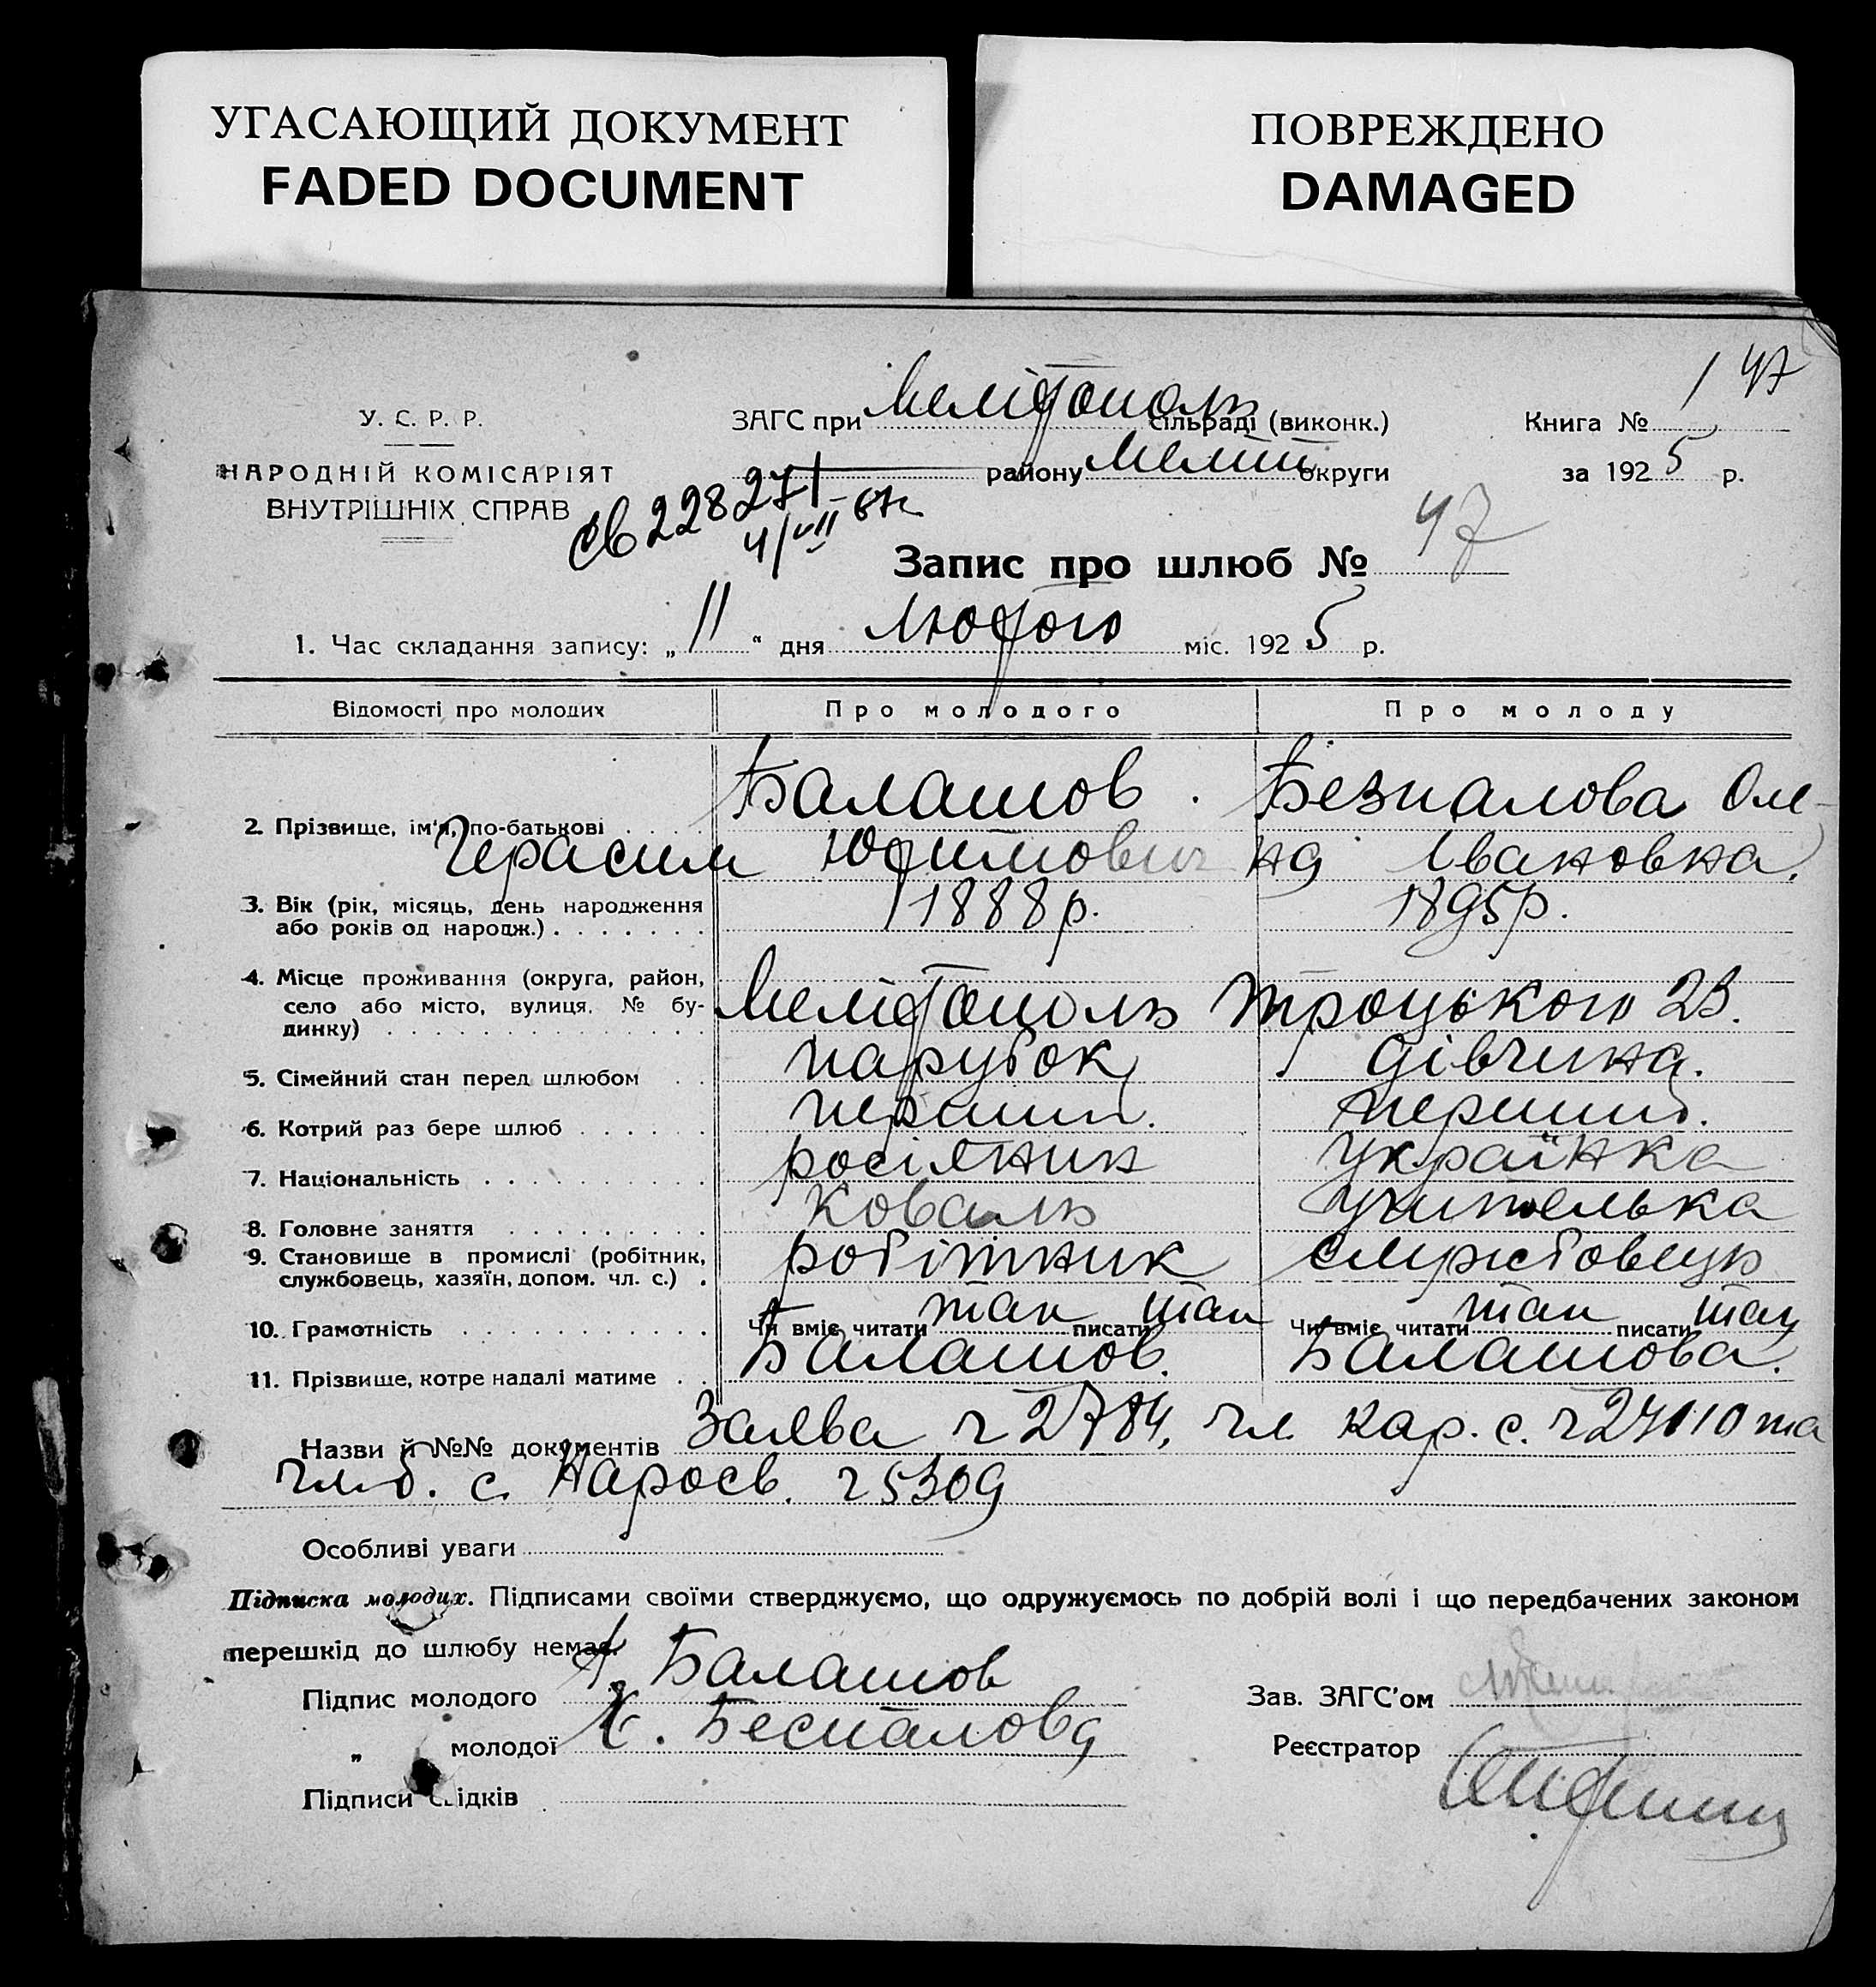 УГАСАЮЩИЙ ДОКУМЕНТ
FADED DOCUMENT
ПОВРЕЖДЕНО
DAMAGED
147
У. С. Р. Р.
НАРОДНІЙ КОМІСАРІЯТ
ВНУТРІШНІХ СПРАВ
ЗАГС при Мелітополь сільраді (виконк.)
району Меліт округи
Книга №
за 1925 р.
св 228271
4/VII-67г
Запис про шлюб № 47
1. Час складання запису: „11" дня Лютого міс. 1925 р.
Відомості про молодих Про молодого Про молоду
Балашов Безпалова Оле-
2. Прізвище, ім'я, по-батькові
Герасим Юхимович на Івановна.
3. Вік (рік, місяць, день народження 1888р. 1895р.
або років од народж.)
4. Місце проживання (округа, район,
село або місто, вулиця. № бу- Мелітополь Троцького 23.
динку)
5. Сімейний стан перед шлюбом парубок дівчина.
6. Котрий раз бере шлюб перший. перший.
7. Національність росіянин українка
8. Головне заняття Коваль учителька
9. Становище в промислі (робітник, робітник службовець
службовець, хазяїн, допом. чл. с.)
10. Грамотність Чи вміє читати так писати так Чи вміє читати так писати так
11. Прізвище, котре надалі матиме Балашов. Балашова.
Назви й №№ документів Заява ч 2784, чл кар. с. ч 27110 та
чл. б. с. Наросв. ч 5309
Особливі уваги
Підписка молодих. Підписами своїми стверджуємо, що одружуємось по добрій волі і що передбачених законом
перешкід до шлюбу немає.
Підпис молодого Балашов
Зав. ЗАГС'ом
„ молодої Беспалова
Реєстратор
Підписи свідків